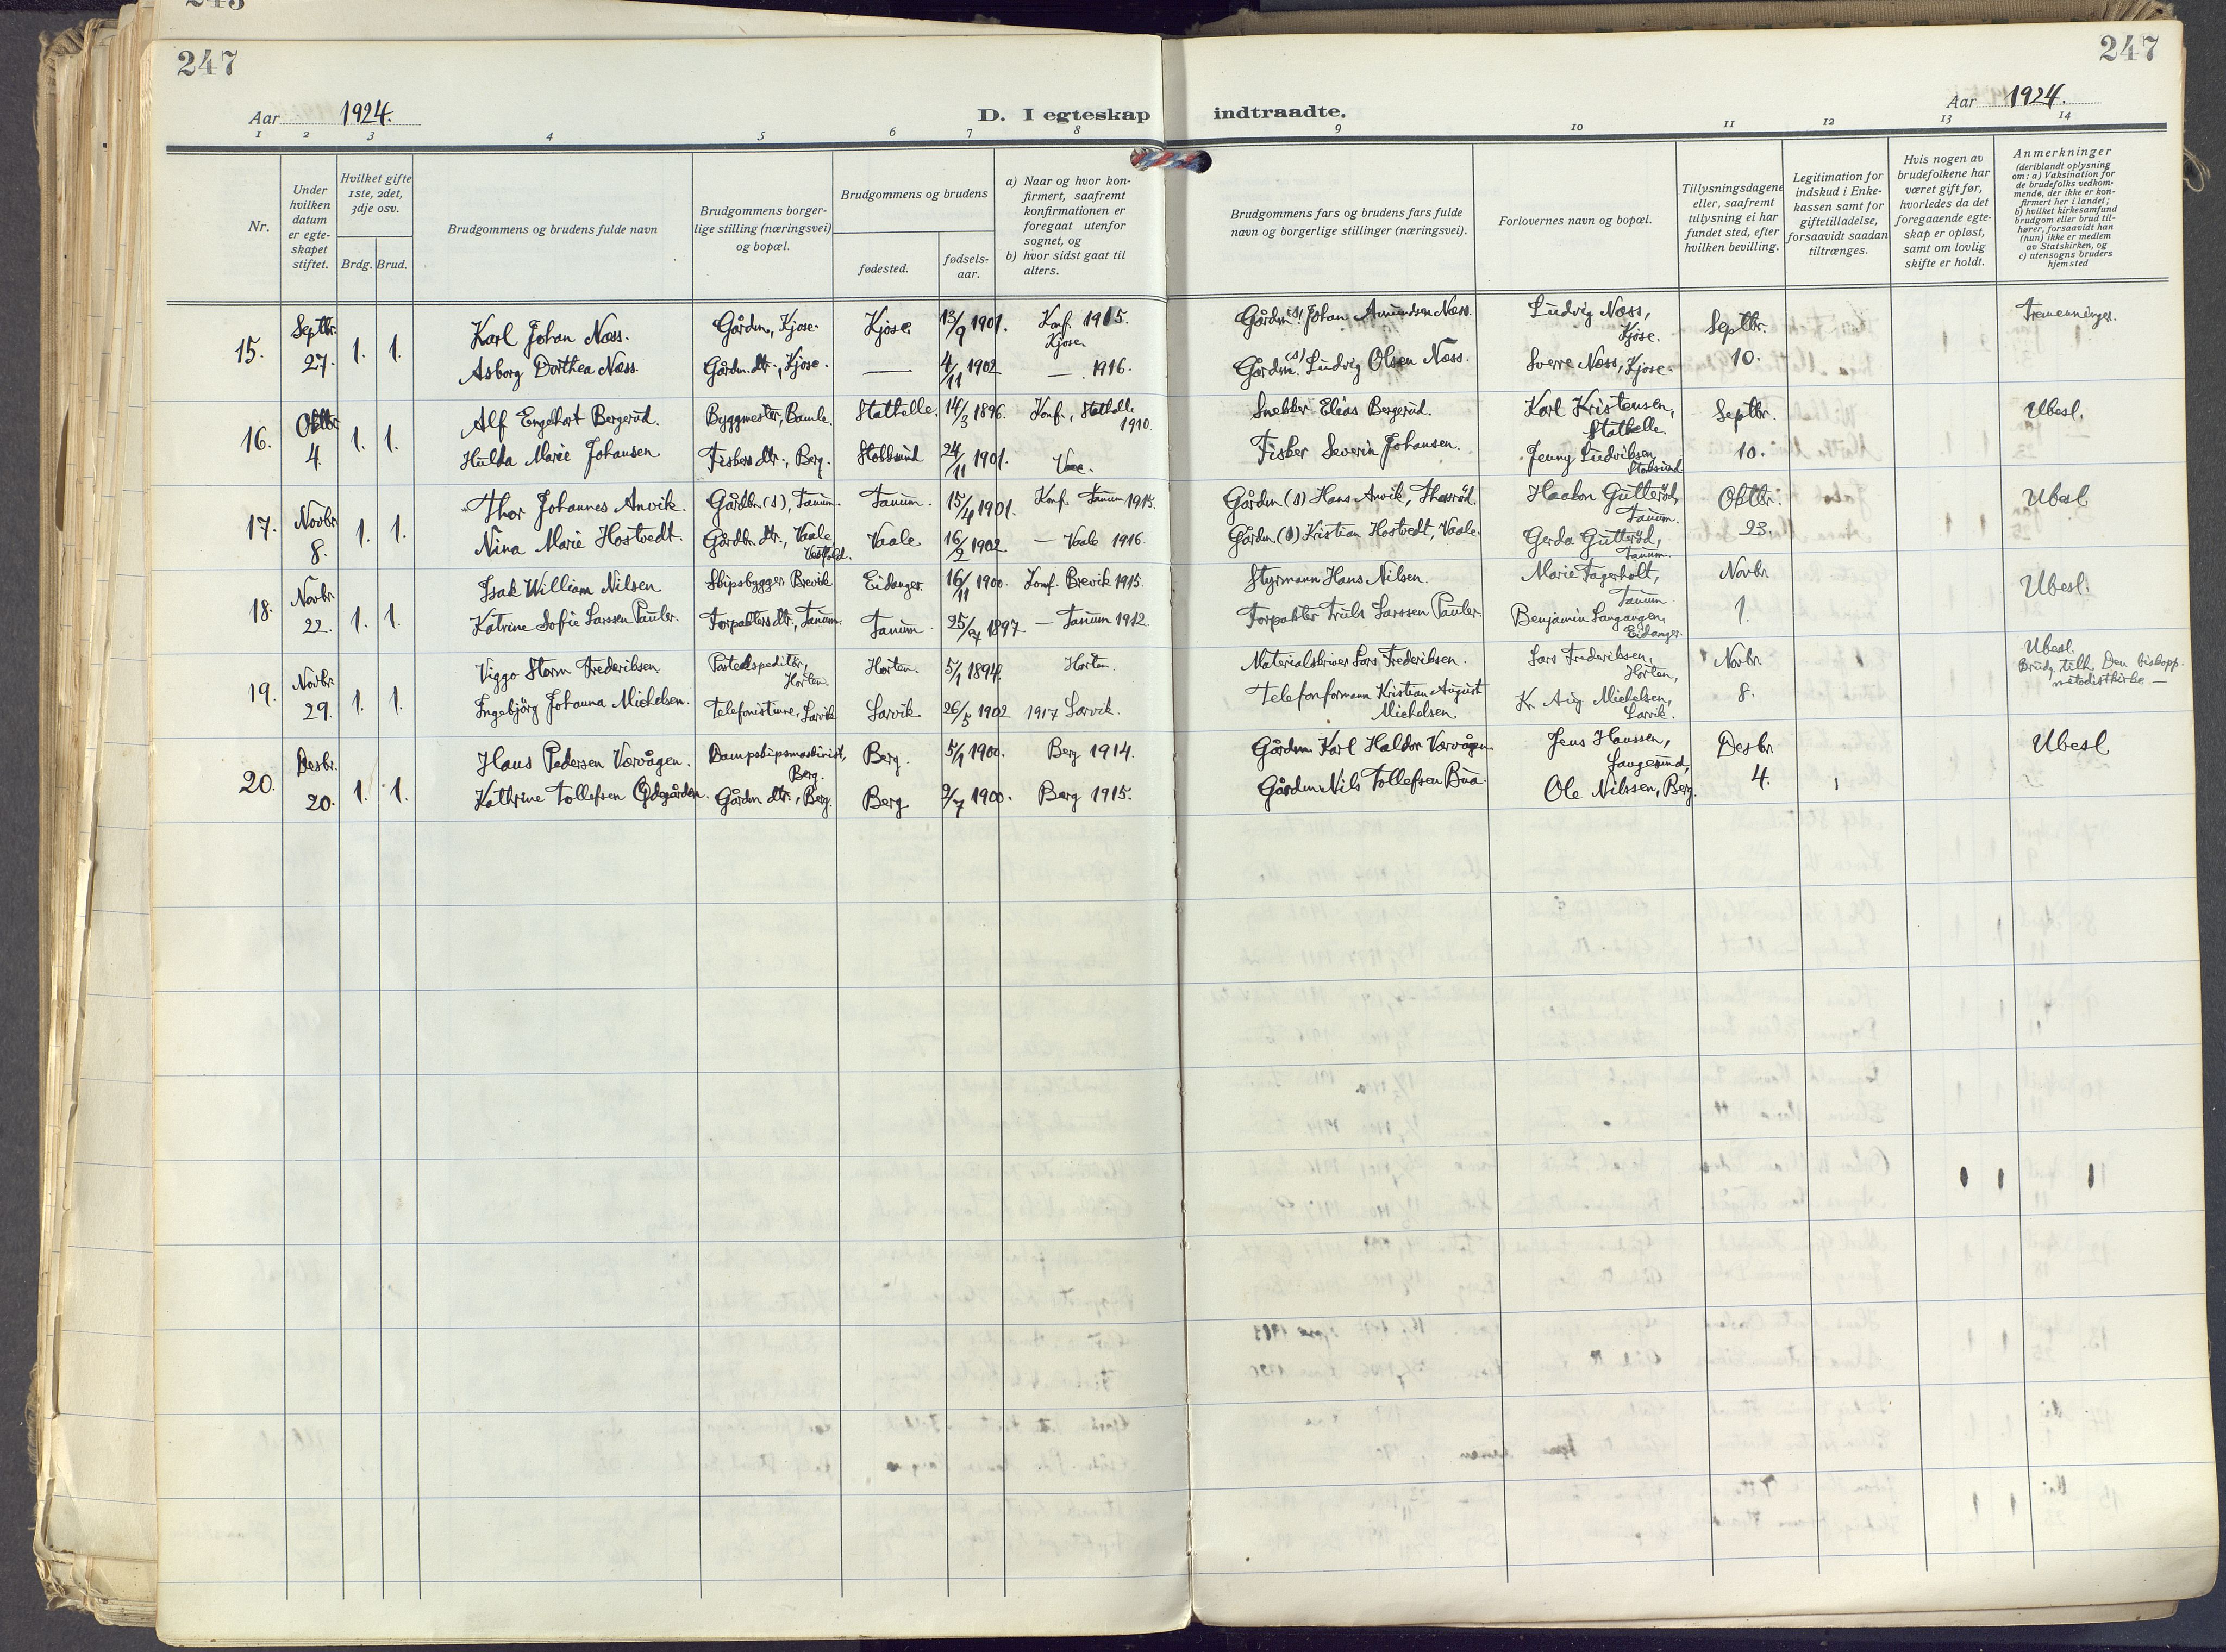 243
247
247
Aar 1924.
D. I egteskap indtraadte.
Aar 1924.
1 2 3 4 5 6 7 8 9 10 11 12 13 14
Nr.
Under hvilken datum er egte-skapet stiftet.
Hvilket gifte 1ste, 2det, 3dje osv.
Brdg. Brud.
Brudgommens og brudens fulde navn
Brudgommens borger-lige stilling (næringsvei) og bopæl.
Brudgommens og brudens
fødested.
fødsels-aar.
a) Naar og hvor kon-firmert, saafremt konfirmationen er foregaat utenfor sognet, og
b) hvor sidst gaat til alters.
Brudgommens fars og brudens fars fulde navn og borgerlige stillinger (næringsvei).
Forlovernes navn og bopæl.
Tillysningsdagene eller, saafremt tillysning ei har fundet sted, efter hvilken bevilling.
Legitimation for indskud i Enke-kassen samt for giftetilladelse, forsaavidt saadan tiltrænges.
Hvis nogen av brudefolkene har været gift før, hvorledes da det foregaaende egte-skap er opløst, samt om lovlig skifte er holdt.
Anmerkninger
(deriblandt oplysning om: a) Vaksination for de brudefolks vedkom-mende, der ikke er kon-firmert her i landet; b) hvilket kirkesamfund brudgom eller brud til-hører, forsaavidt han (hun) ikke er medlem av Statskirken, og c) utensogns bruders hjemsted
15. Septbr. 27. 1. 1.
Karl Johan Næss. Gårdm., Kjose. Kjose 13/9 1901. Konf. 1915. Kjose. Gårdm.(s). Johan Amundsen Næss. Ludvig Næss, Kjose. Septbr. Tremenninger.
Asborg Dorthea Næss. Gårdm. dtr., Kjose. — 4/11 1902 — 1916. Gårdm.(s) Ludvig Olsen Næss. Sverre Næss, Kjose. 10.
16. Oktbr. 4. 1. 1.
Alf Engelhart Bergerud. Byggmester, Bamle. Stathelle. 14/3 1896. Konf., Stathelle 1910. Snekker Elias Bergerud. Karl Kristensen, Stathelle. Septbr. Ubesl.
Hulda Marie Johansen Fiskers dtr., Berg. Stokksund 24/11 1901. Fisker Severin Johansen. Jenny Ludviksen, Stoksund 10.
17. Novbr 8. 1. 1.
Thor Johannes Anvik. Gårdbr.(s), Tanum. Tanum. 15/4 1901. Konf. Tanum 1915. Gårdm.(s) Hans Anvik, Haakon Gutterød, Tanum. Oktbr. Ubesl
Nina Marie Hostvedt. Gårdbr. dtr., Vaale Vestfold. Vaale 16/2 1902 — Vaale 1916. Gårdm.(s) Kristian Hostvedt, Vaale. Gerda Gutterød, Tanum. 23.
18. Novbr. 22. 1. 1.
Isak William Nilsen Skipsbygger Brevik Eidanger 16/11 1900. Konf. Brevik 1915. Styrmann Hans Nilsen. Marie Fagerholt, Tanum. Novbr. Ubesl.
Katrine Sofie Larssen Pauler. Forpakters dtr., Tanum. Tanum. 1897 — Tanum 1912. Forpakter Truls Larssen Pauler. Benjamin Langangen, Eidanger. 1.
19. Novbr. 29. 1. 1.
Viggo Storm Frederiksen Postekspeditør, Horten. Horten. 5/1 1894. Horten. Materialskriver Lars Frederiksen. Lars Frederiksen, Horten, Novbr. Ubesl. Brudg. tilh. Den biskopp. metodistkirke —
Ingebjørg Johanna Michelsen. Telefonistinne, Larvik Larvik 26/5 1902 1917 Larvik. Telefonformann Kristian August Michelsen Kr. Aug Michelsen, Larvik. 8.
20. Desbr. 20. 1. 1.
Hans Pedersen Værvågen. Dampskipsmaskinist, Berg. Berg. 5/9 1900. Berg 1914. Gårdm. Karl Haldor Værvågen. Jens Hanssen, Langesund, Desbr. Ubesl
Kathrine Tollefsen Ødegården. Gårdm dtr., Berg. Berg 9/7 1900. Berg 1915. Gårdm Nils Tollefsen Bua. Ole Nilssen, Berg. 4.